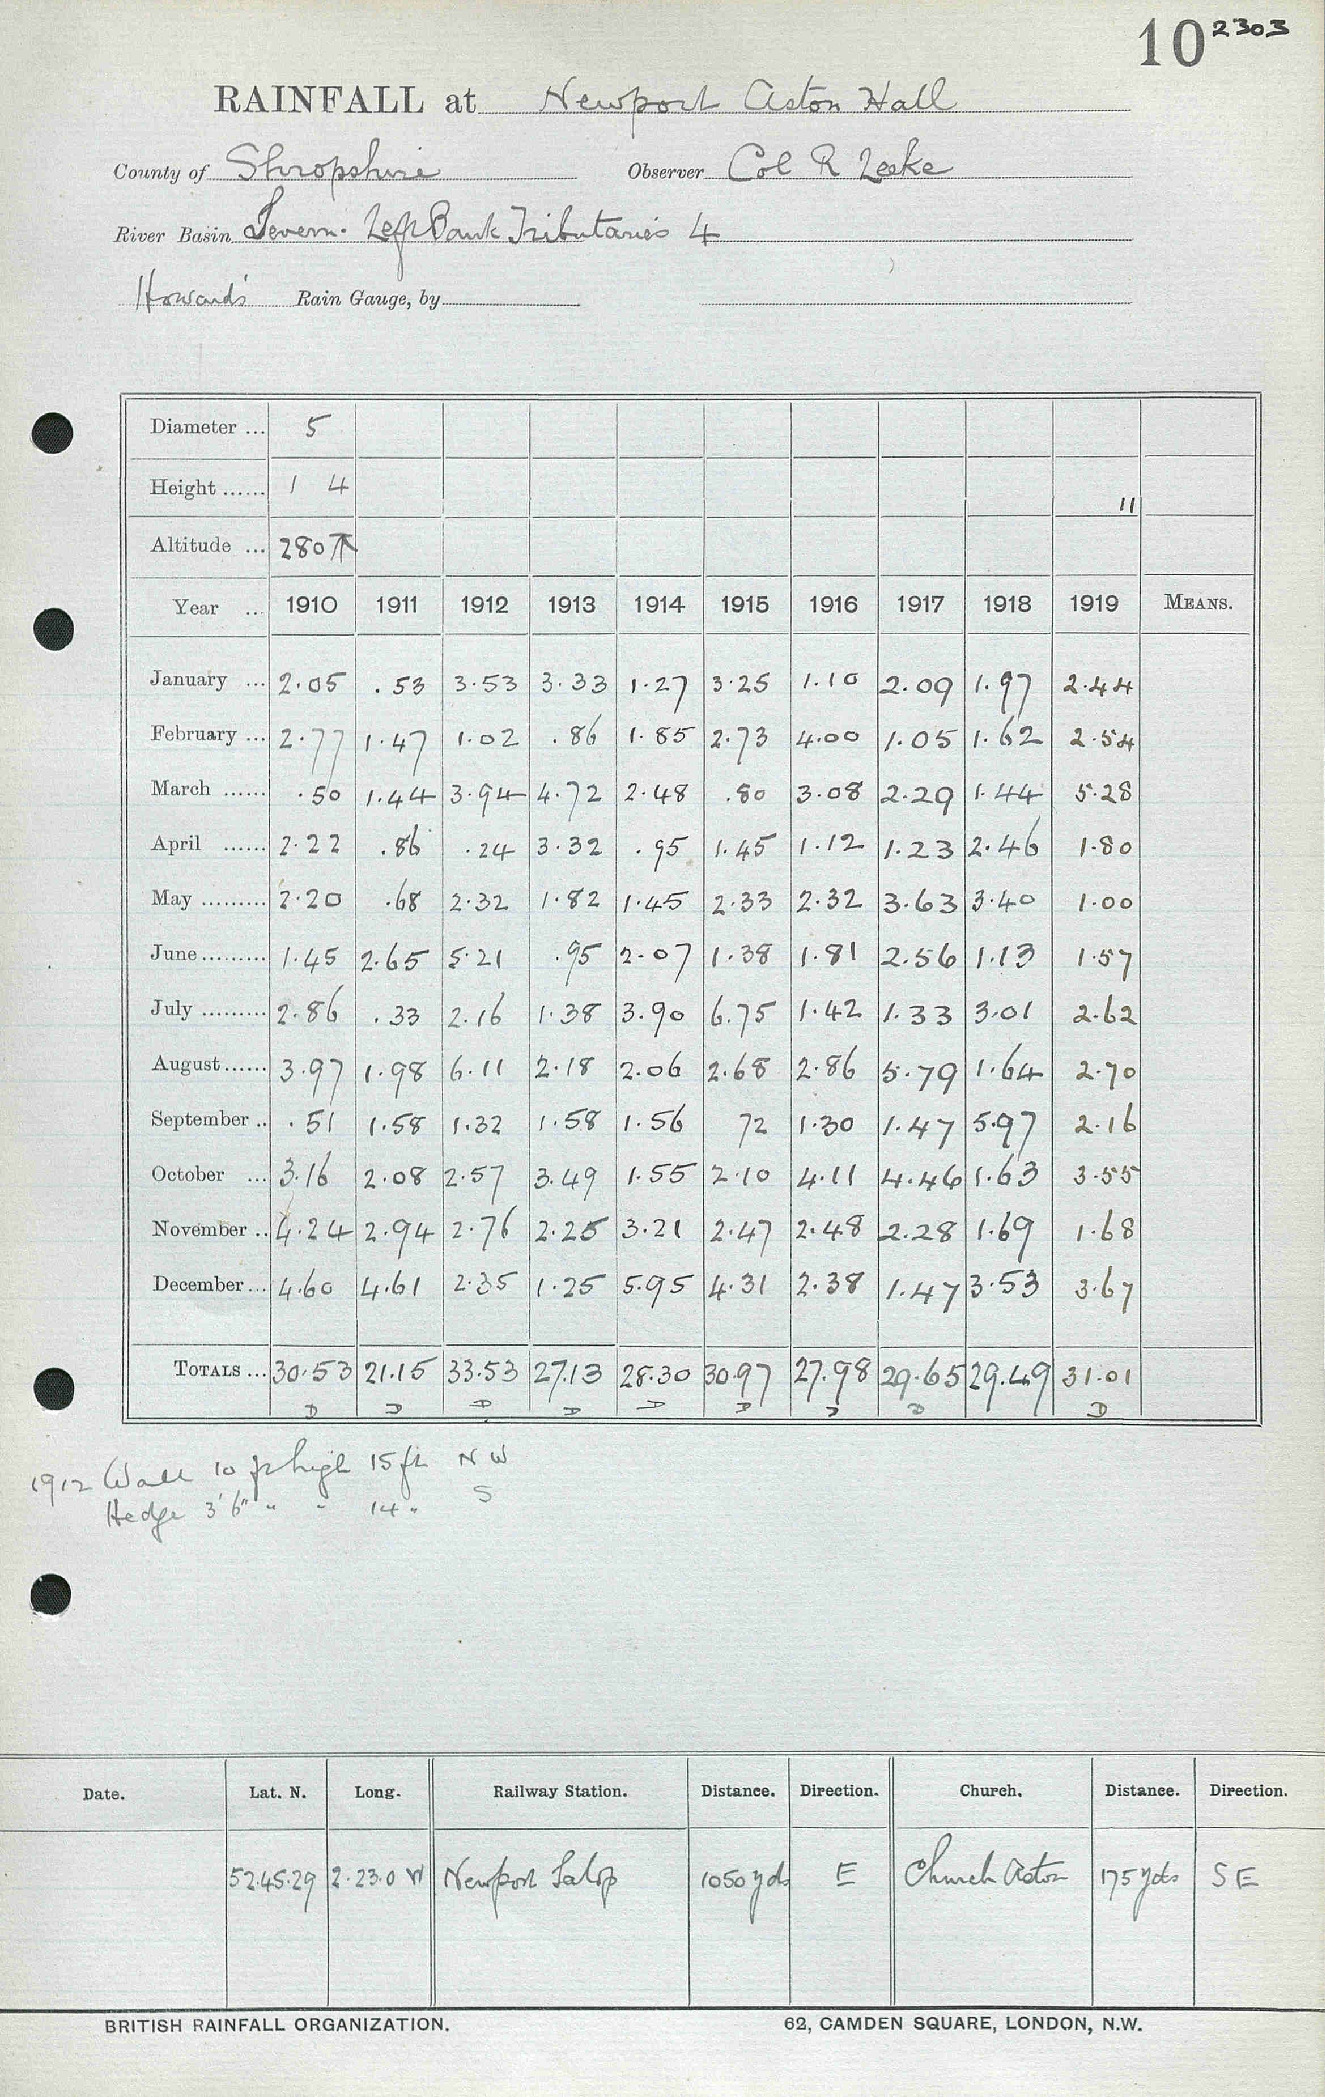 10 2303
RAINFALL at Newport Aston Hall
County of Shropshire Observer Col R Leeke
River Basin Severn. Left Bank Tributaries 4
Howards Rain Gauge, by
Diameter ... 5
Height ...... 1 4 11
Altitude ... 280
Year ... 1910 1911 1912 1913 1914 1915 1916 1917 1918 1919 MEANS.
January ... 2.05 .53 3.53 3.33 1.27 3.25 1.10 2.09 1.97 2.44
February ... 2.77 1.47 1.02 .86 1.85 2.73 4.00 1.05 1.62 2.54
March ...... .50 1.44 3.94 4.72 2.48 .80 3.08 2.29 1.44 5.28
April ...... 2.22 .86 .24 3.32 .95 1.45 1.12 1.23 2.46 1.80
May ......... 2.20 .68 2.32 1.82 1.45 2.33 2.32 3.63 3.40 1.00
June ......... 1.45 2.65 5.21 .95 2.07 1.38 1.81 2.56 1.13 1.57
July ......... 2.86 .33 2.16 1.38 3.90 6.75 1.42 1.33 3.01 2.62
August ...... 3.97 1.98 6.11 2.18 2.06 2.68 2.86 5.79 1.64 2.70
September .. .51 1.58 1.32 1.58 1.56 72 1.30 1.47 5.97 2.16
October ... 3.16 2.08 2.57 3.49 1.55 2.10 4.11 4.46 1.63 3.55
November .. 4.24 2.94 2.76 2.25 3.21 2.47 2.48 2.28 1.69 1.68
December ... 4.60 4.61 2.35 1.25 5.95 4.31 2.38 1.47 3.53 3.67
TOTALS ... 30.53 21.15 33.53 27.13 28.30 30.97 27.98 29.65 29.49 31.01
D D D D D D D D D
1912 Wall 10 ft high 15 ft N W
Hedge 3'6" " " 14 " S
Date. Lat. N. Long. Railway Station. Distance. Direction. Church. Distance. Direction.
52.45.29 2.23.0 W Newport Salop 1050 yds E Church Aston 175 yds S E
BRITISH RAINFALL ORGANIZATION. 62, CAMDEN SQUARE, LONDON, N.W.